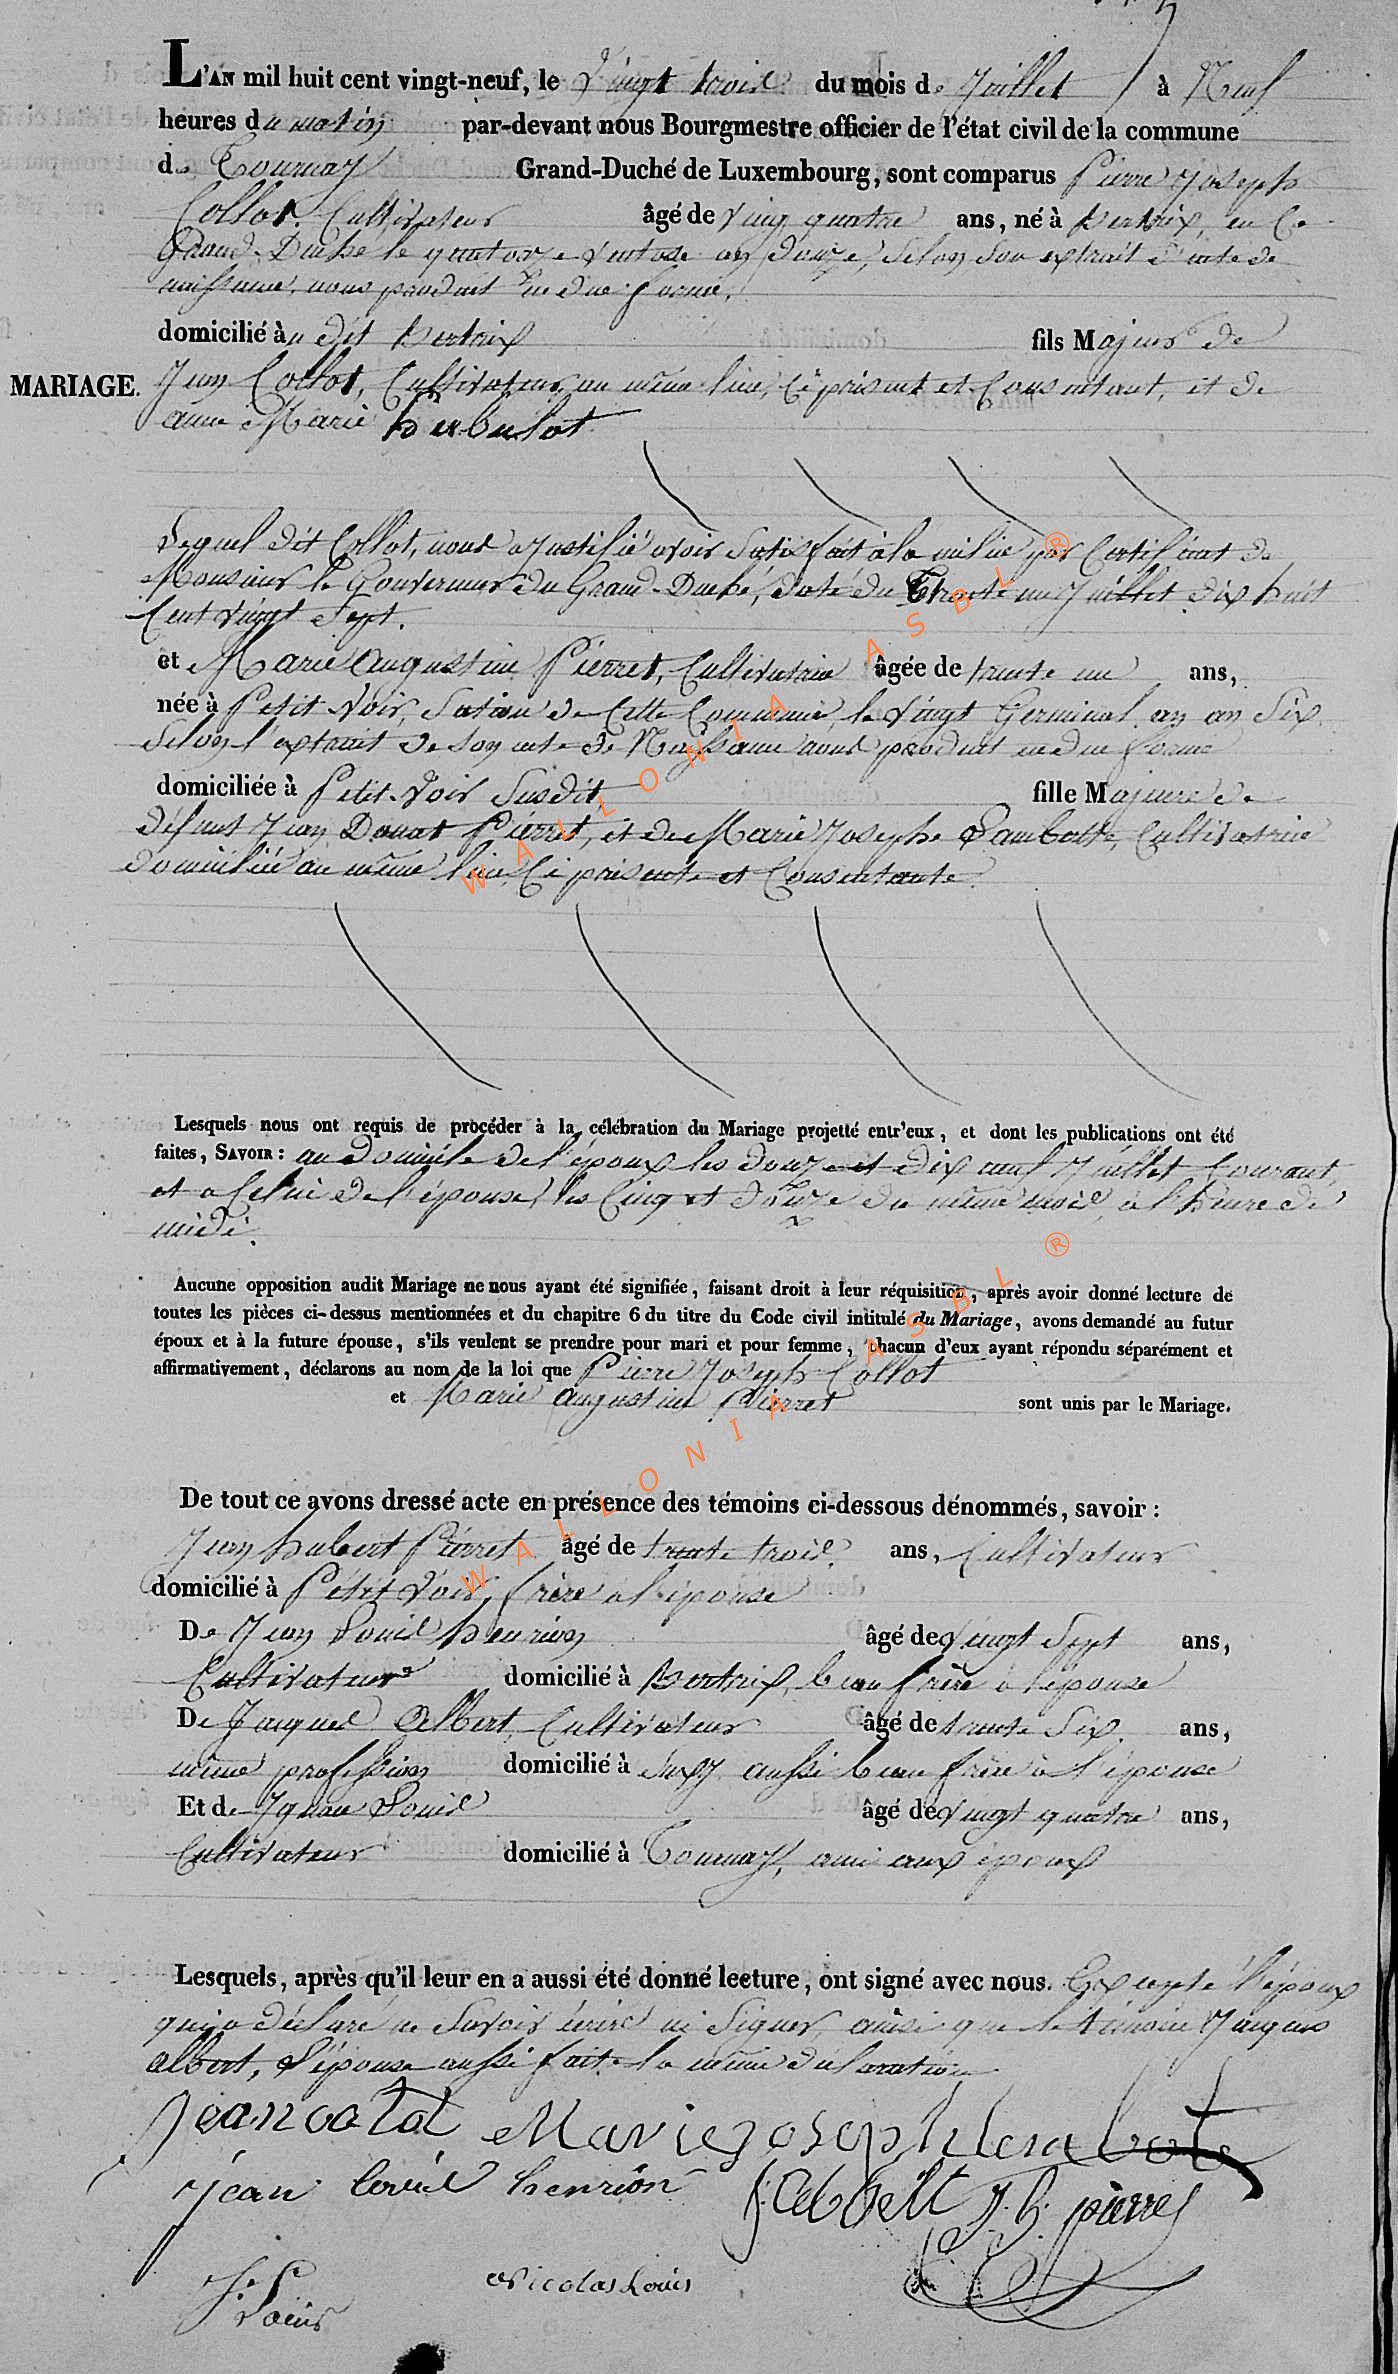 L'AN mil huit cent vingt-neuf, le Vingt trois du mois de Juillet à Neuf
heures du matin par-devant nous Bourgmestre officier de l'état civil de la commune
de Tournay Grand-Duché de Luxembourg, sont comparus Pierre Joseph
Collot, Cultivateur âgé de vingt quatre ans, né à Bertrix, en Ce
Grand-Duché le quatorze ventose an douze, selon son extrait d'acte de
naissance, nous produit en due forme,
domicilié au dit Bertrix fils Majeur de
MARIAGE. Jean Collot, Cultivateur au même lieu, Ci présent et Consentant, et de
anne Marie herbulot
Lequel dit Collot, nous a justifié avoir Satisfait à la milice par Certificat de
Monsieur le Gouverneur du Grand-Duché, daté du trente un Juillet dix huit
Cent vingt Sept.
et Marie Augustine Pierret, Cultivatrice âgée de trente un ans,
née à Petit-Voir, Section de Cette Commune, le vingt Germinal an Six
Selon l'extrait de son acte de Naissance nous produit en due forme
domiciliée à Petit-Voir Susdit, fille Majeure de
défunt Jean Donat Pierret, et de Marie Josephe Lambotte, Cultivatrice
domiciliée au même lieu, Ci présente et Consentante
Lesquels nous ont requis de procéder à la célébration du Mariage projetté entr'eux, et dont les publications ont été
faites, SAVOIR : au domicile de l'époux les douze et dix neuf Juillet Courant,
et a Celui de l'épouse, les Cinq et douze du même mois, à l'heure de
midi.
Aucune opposition audit Mariage ne nous ayant été signifiée, faisant droit à leur réquisition, après avoir donné lecture de
toutes les pièces ci-dessus mentionnées et du chapitre 6 du titre du Code civil intitulé du Mariage, avons demandé au futur
époux et à la future épouse, s'ils veulent se prendre pour mari et pour femme, chacun d'eux ayant répondu séparément et
affirmativement, déclarons au nom de la loi que Pierre Joseph Collot
et Marie Augustine Pierret sont unis par le Mariage.
De tout ce avons dressé acte en présence des témoins ci-dessous dénommés, savoir :
Jean hubert Pierret âgé de trente trois ans, Cultivateur
domicilié à Petit Voir, frère à l'épouse
De Jean Louis henrion âgé de vingt Sept ans,
Cultivateur domicilié à Bertrix, beau frère à l'épouse
De Jacques Albert, Cultivateur âgé de trente Six ans,
même profession domicilié à Suxy aussi beau frère à l'épouse
Et de Ignace Louis âgé de vingt quatre ans,
Cultivateur domicilié à Tournay, ami aux époux
Lesquels, après qu'il leur en a aussi été donné lecture, ont signé avec nous. Excepté l'époux
qui a déclaré ne Savoir écrire ni Signer, ainsi que le témoin Jacques
Albert, l'épouse aussi fait la même déclaration
jean colot Marie joseph lenabote
jean louis henrion J. h. pierret
Nicolas Louis
Louis
WALLONIA ASBL ®
WALLONIA ASBL ®